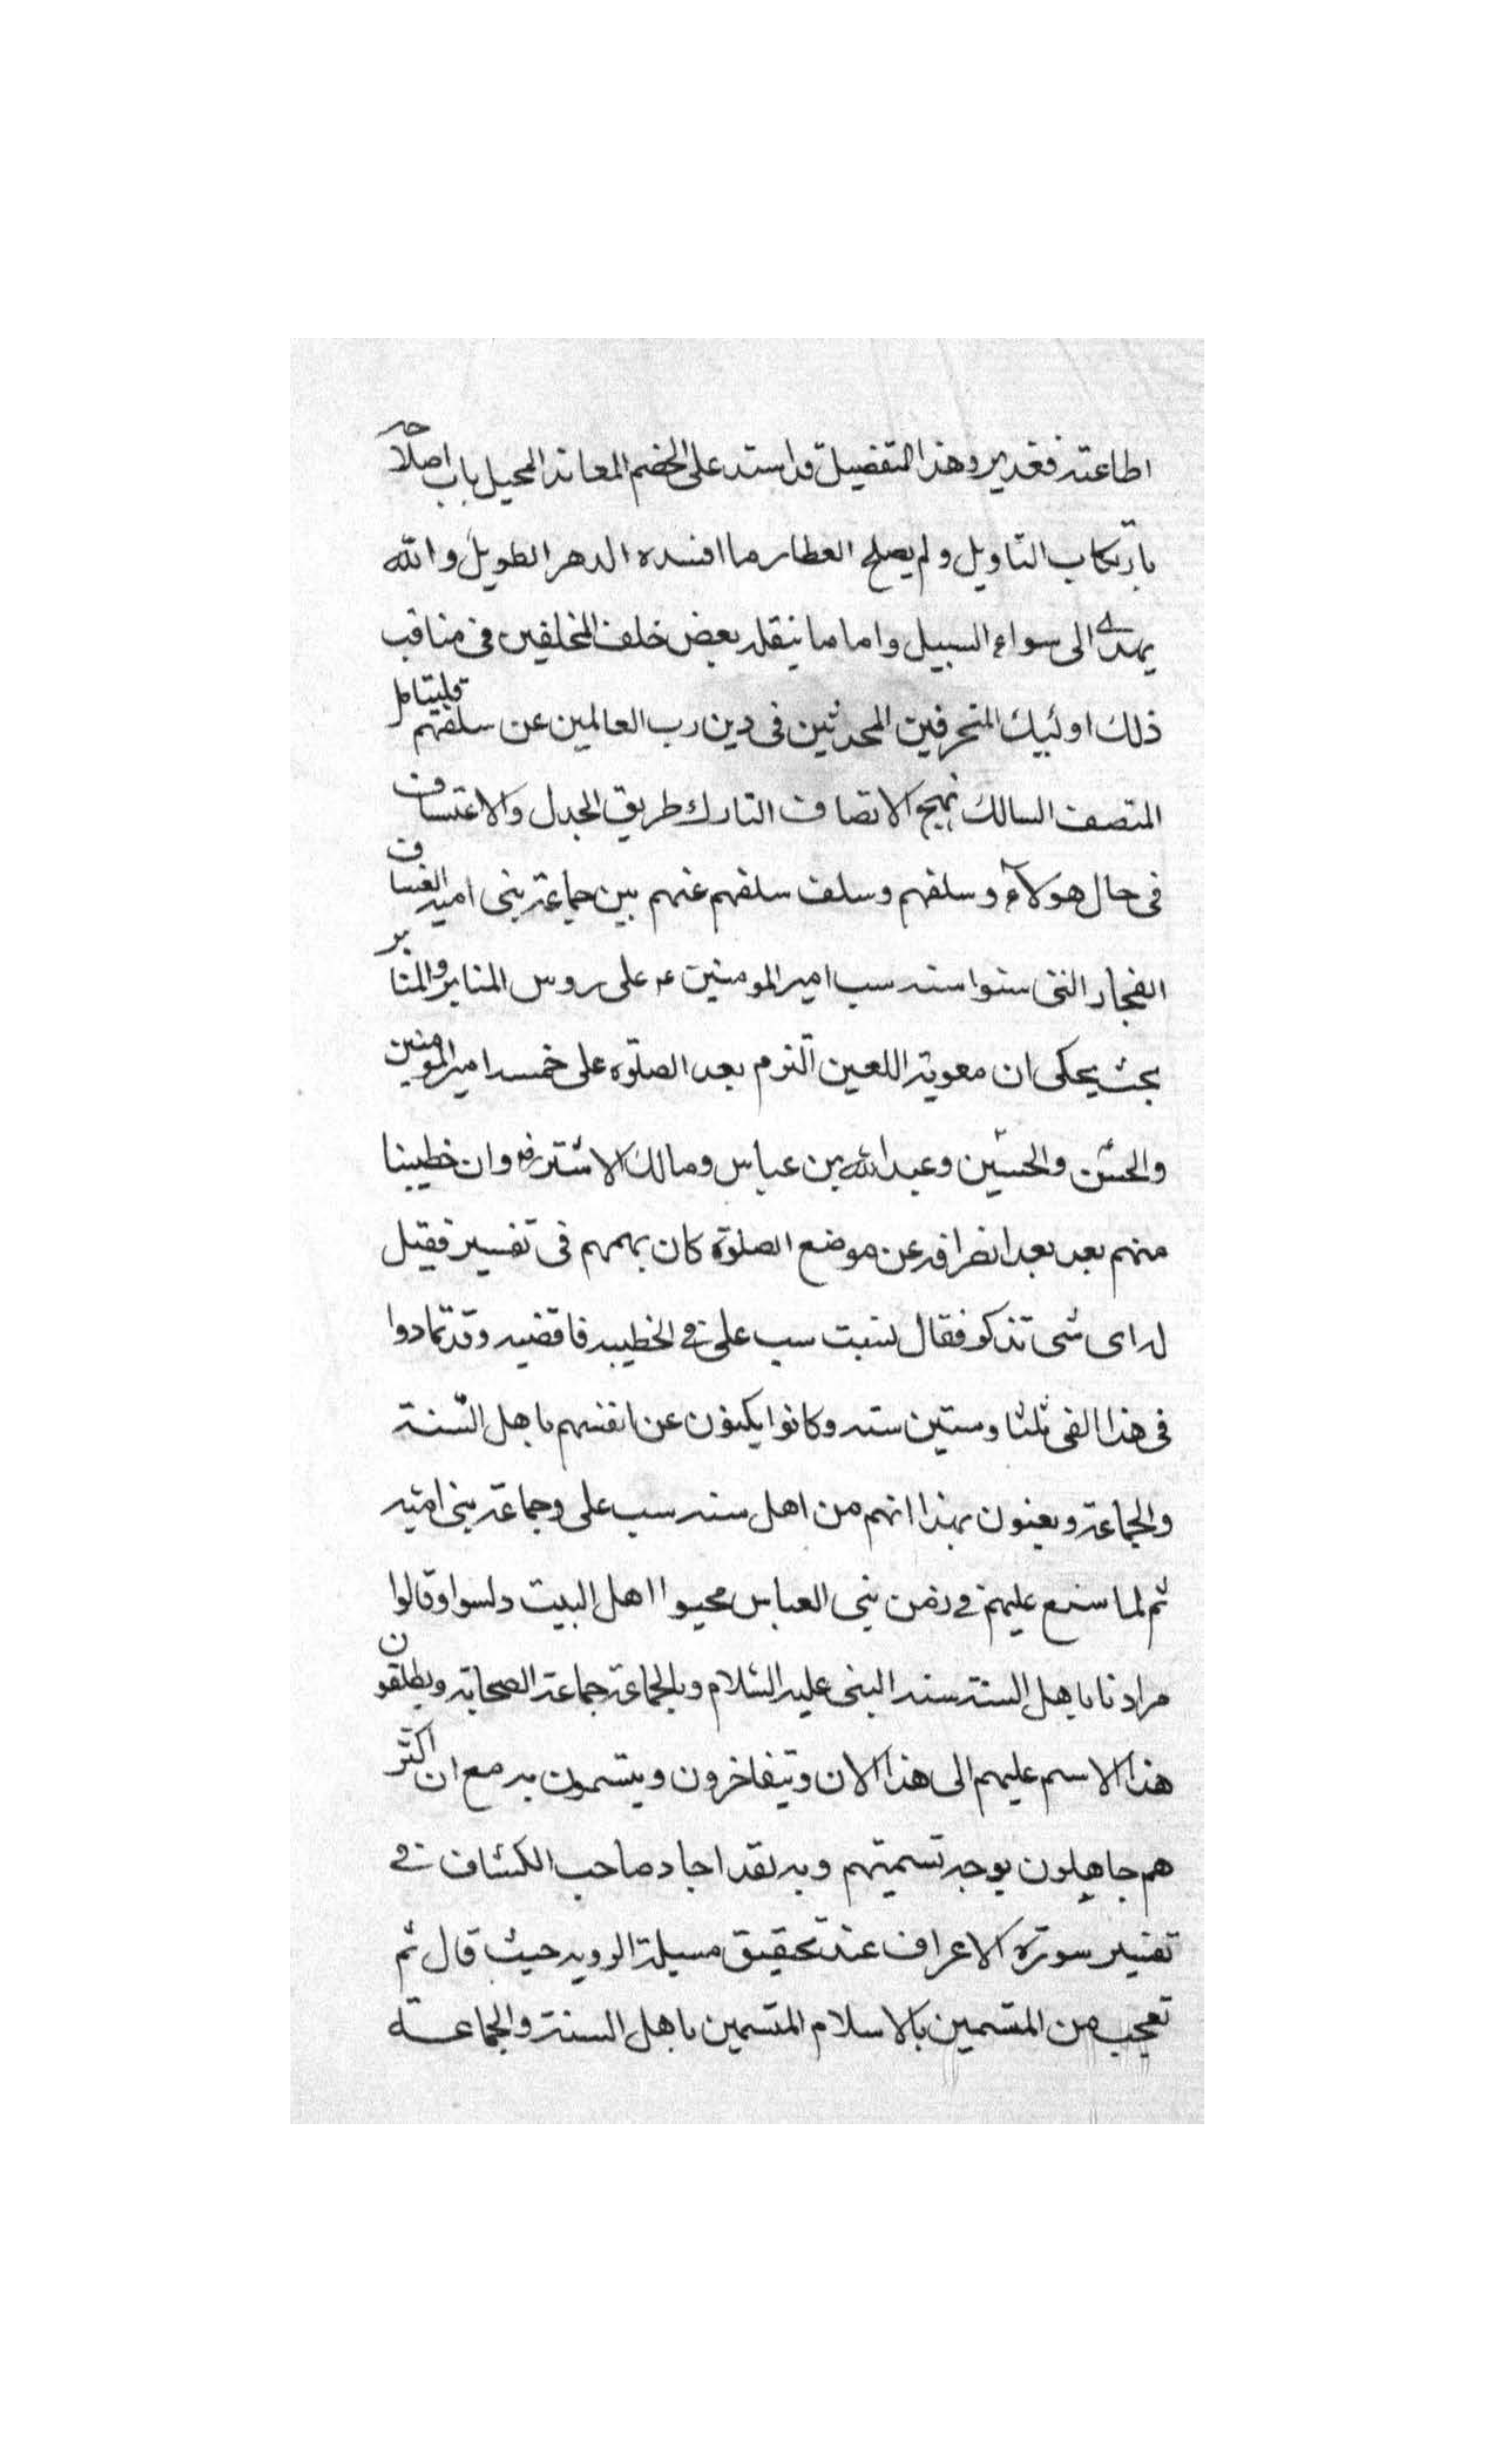 اطاعته فغدير وهذا التفضيل قد استد على الخصم المعاند المحيل باب اصلاحه
بارتكاب التاويل ولم يصلح العطار ما افسده الدهر الطويل والله
يهدى الى سواء السبيل واما ما ينقله بعض خلف المخلفين فى مناقب
ذلك اولئيك المنحرفين المحدثين فى دين رب العالمين عن سلفهم فليتامل
المتصف السالك نهج الاتصاف التارك طريق الجدل والاعتساف
فى حال هولاء وسلفهم وسلف سلفهم عنهم بين جماعة بنى اميه الفساق
الفجار التى سنوا سنه سب امير المومنين ع على روس المنابر والمنابر
بحث يحكى ان معوية اللعين التزم بعد الصلوة على خمسه امير المومنين
والحسن والحسين وعبد الله بن عباس ومالك الاشتر رض وان خطيبنا
منهم بعد بعد انصرافه عن موضع الصلوة كان بهمهم فى تفسير فقيل
له اى شى تذكو فقال نسيت سب على فى الخطيبه فاقضيه وقد تمادوا
فى هذا الفى ثلثا وستين سنه وكانوا يكنون عن انفسهم باهل السنة
والجماعة ويعنون بهذا انهم من اهل سنه سب على وجماعة بنى اميه
ثم لما سنع عليهم فى زمن بنى العباس محيوا اهل البيت دلسوا وقالوا
مرادنا باهل السنة سنه النبى عليه السلام وبالجماعة جماعة الصحابة ويطلقون
هذا الاسم عليهم الى هذا الان ويتفاخرون ويتسمون به مع ان اكثر
هم جاهلون بوجه تسميتهم وبه نقد اجاد صاحب الكشاف فى
تفسير سورة الاعراف عند تحقيق مسيلة الرويه حيث قال ثم
تعجب من المتسمين بالاسلام المتسمين باهل السنة والجماعة